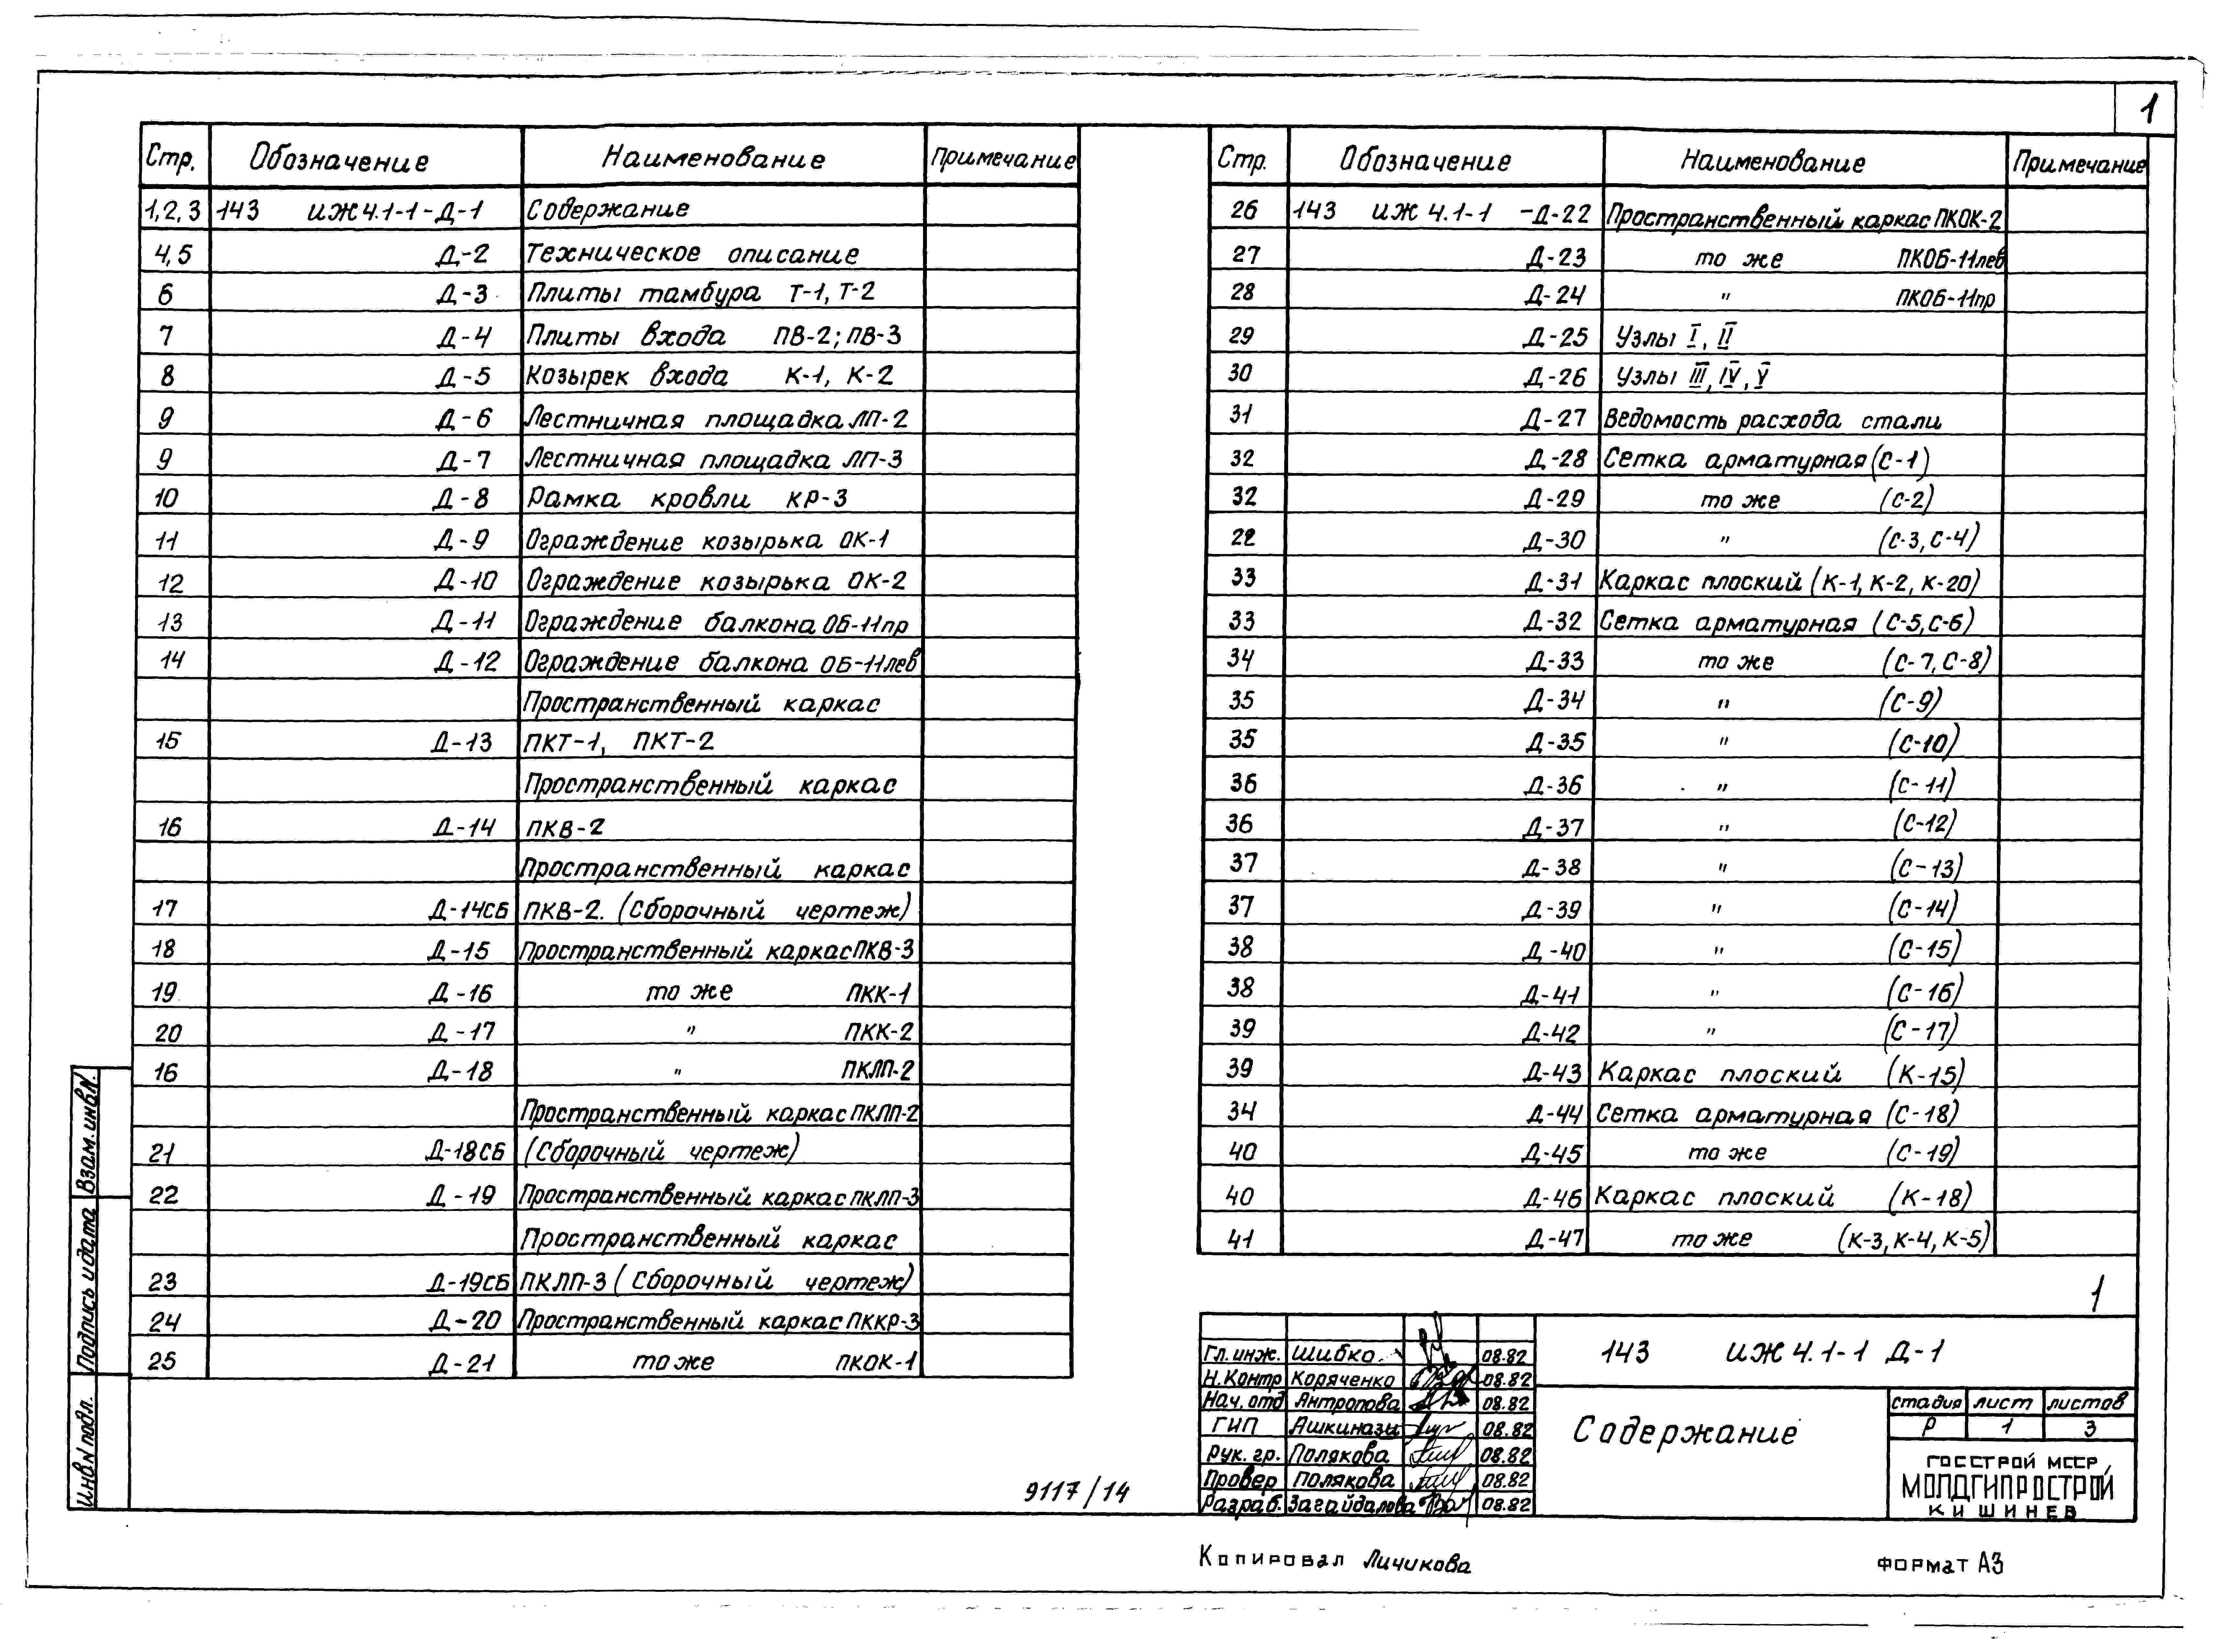 1
Стр. Обозначение Наименование Примечание
1,2,3 143 ИЖ4.1-1-Д-1 Содержание
4,5 Д-2 Техническое описание
6 Д-3 Плиты тамбура Т-1, Т-2
7 Д-4 Плиты входа ПВ-2; ПВ-3
8 Д-5 Козырек входа К-1, К-2
9 Д-6 Лестничная площадка ЛП-2
9 Д-7 Лестничная площадка ЛП-3
10 Д-8 Рамка кровли КР-3
11 Д-9 Ограждение козырька ОК-1
12 Д-10 Ограждение козырька ОК-2
13 Д-11 Ограждение балкона ОБ-11пр
14 Д-12 Ограждение балкона ОБ-11лев
Пространственный каркас
15 Д-13 ПКТ-1, ПКТ-2
Пространственный каркас
16 Д-14 ПКВ-2
Пространственный каркас
17 Д-14СБ ПКВ-2. (Сборочный чертеж)
18 Д-15 Пространственный каркас ПКВ-3
19 Д-16 то же ПКК-1
20 Д-17 " ПКК-2
16 Д-18 " ПКЛП-2
Пространственный каркас ПКЛП-2
21 Д-18СБ (Сборочный чертеж)
22 Д-19 Пространственный каркас ПКЛП-3
Пространственный каркас
23 Д-19СБ ПКЛП-3 (Сборочный чертеж)
24 Д-20 Пространственный каркас ПККР-3
25 Д-21 то же ПКОК-1
Стр. Обозначение Наименование Примечание
26 143 ИЖ 4.1-1 -Д-22 Пространственный каркас ПКОК-2
27 Д-23 то же ПКОБ-11лев
28 Д-24 " ПКОБ-11пр
29 Д-25 Узлы I, II
30 Д-26 Узлы III, IV, V
31 Д-27 Ведомость расхода стали
32 Д-28 Сетка арматурная (С-1)
32 Д-29 то же (С-2)
22 Д-30 " (С-3, С-4)
33 Д-31 Каркас плоский (К-1, К-2, К-20)
33 Д-32 Сетка арматурная (С-5, С-6)
34 Д-33 то же (С-7, С-8)
35 Д-34 " (С-9)
35 Д-35 " (С-10)
36 Д-36 " (С-11)
36 Д-37 " (С-12)
37 Д-38 " (С-13)
37 Д-39 " (С-14)
38 Д-40 " (С-15)
38 Д-41 " (С-16)
39 Д-42 " (С-17)
39 Д-43 Каркас плоский (К-15)
34 Д-44 Сетка арматурная (С-18)
40 Д-45 то же (С-19)
40 Д-46 Каркас плоский (К-18)
41 Д-47 то же (К-3, К-4, К-5)
1
Гл. инж. Шибко 08.82
Н.Контр Коряченко 08.82
Нач. отд Антропова 08.82
ГИП Ашкинази 08.82
Рук. гр. Полякова 08.82
Провер Полякова 08.82
Разраб. Загайдалова 08.82
143 ИЖ 4.1-1 Д-1
Содержание
стадия лист листов
Р 1 3
ГОССТРОЙ МССР,
МОЛДГИПРОСТРОЙ
КИШИНЕВ
Взам. инв.N.
Подпись и дата
Инв.N подл.
9117/14
Копировал Личикова
Формат А3